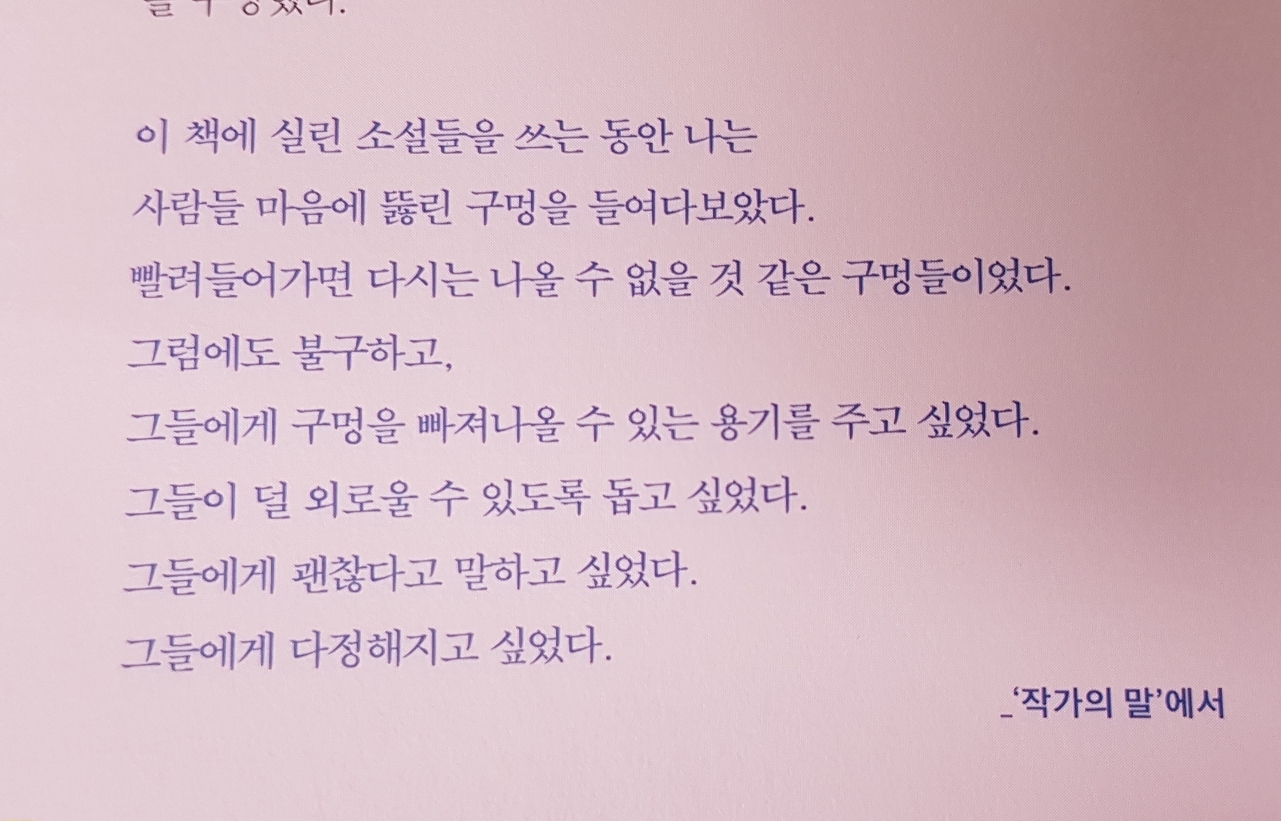 이 책에 실린 소설들을 쓰는 동안 나는
사람들 마음에 뚫린 구멍을 들여다보았다.
빨려들어가면 다시는 나올 수 없을 것 같은 구멍들이었다.
그럼에도 불구하고,
그들에게 구멍을 빠져나올 수 있는 용기를 주고 싶었다.
그들이 덜 외로울 수 있도록 돕고 싶었다.
그들에게 괜찮다고 말하고 싶었다.
그들에게 다정해지고 싶었다.
_‘작가의 말’에서